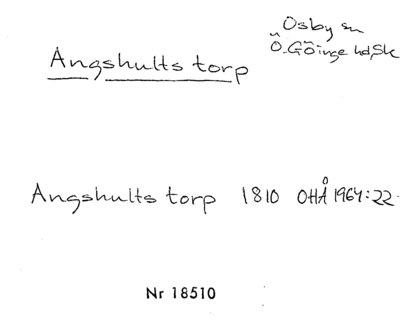 Osby sn
Ö. Göinge hd, Sk
Angshults torp
Angshults torp 1810 OHÅ 1964:22
Nr 18510